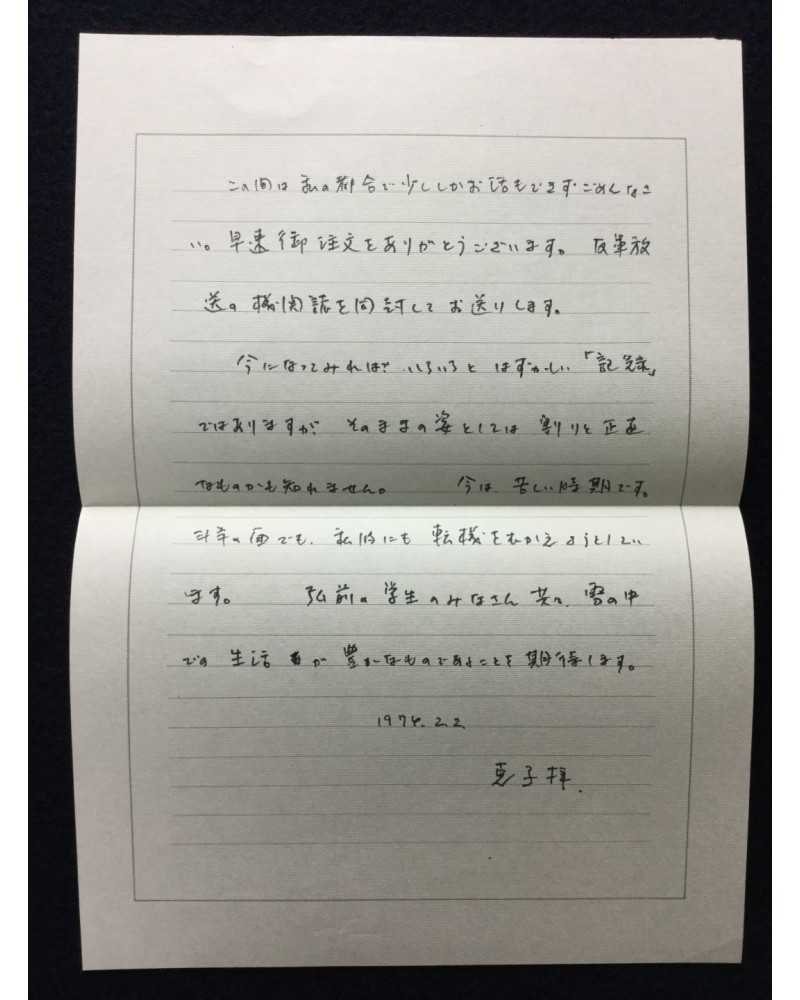 この間は私の都合で少ししかお話もできずごめんなさ
い。早速御注文をありがとうございます。反軍放
送の機関誌を同封してお送りします。
今になってみれば、いろいろとはずかしい「記録」
ではありますが、そのままの姿としては割りと正直
なものかも知れません。 今は、苦しい時期です。
斗争の面でも、私的にも転機をむかえようとしてい
ます。 弘前の学生のみなさん共々、雪の中
での生活が豊かなものであることを期待します。
1974.2.2
恵子拝.